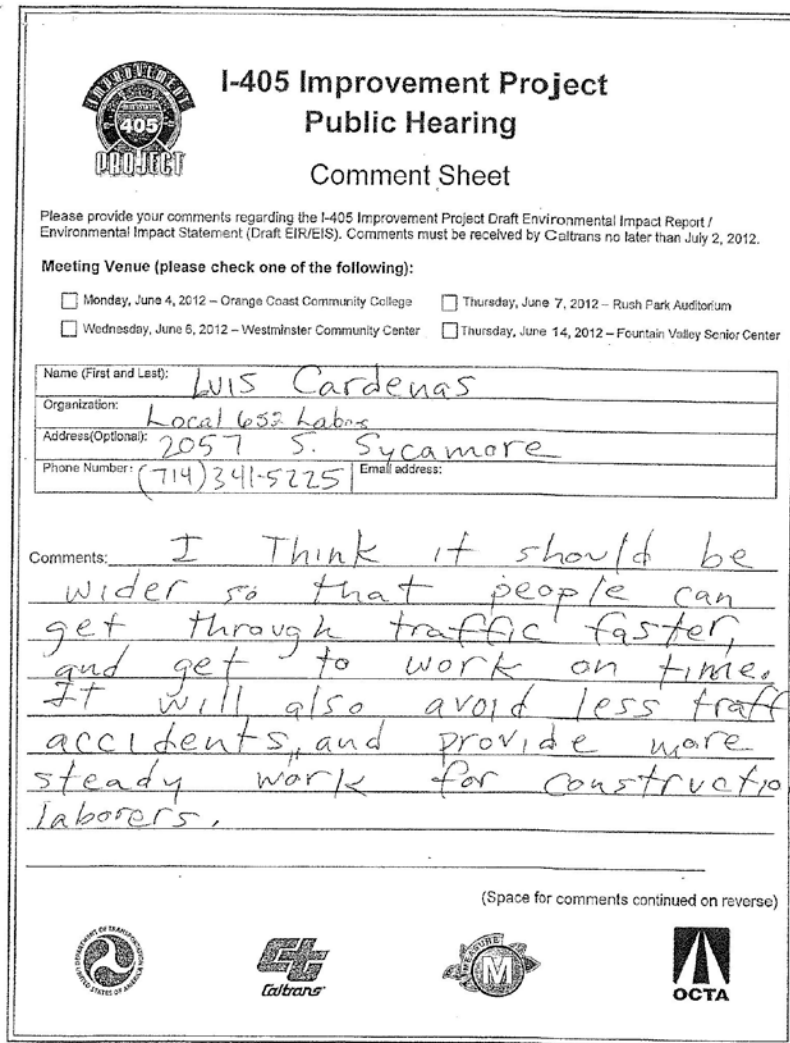 IMPROVEMENT
INTERSTATE
405
PROJECT
I-405 Improvement Project
Public Hearing
Comment Sheet
Please provide your comments regarding the I-405 Improvement Project Draft Environmental Impact Report /
Environmental Impact Statement (Draft EIR/EIS). Comments must be received by Caltrans no later than July 2, 2012.
Meeting Venue (please check one of the following):
Monday, June 4, 2012 – Orange Coast Community College
Thursday, June 7, 2012 – Rush Park Auditorium
Wednesday, June 6, 2012 – Westminster Community Center
Thursday, June 14, 2012 – Fountain Valley Senior Center
Name (First and Last): Luis Cardenas
Organization: Local 652
Address(Optional): 2057 S. Sycamore
Phone Number: (714)341-5225 Email address:
Comments: I Think it should be
wider so that people can
get through traffic faster,
and get to work on time.
It will also avoid less traff
accidents, and provide more
steady work for constructio
laborers.
(Space for comments continued on reverse)
DEPARTMENT OF TRANSPORTATION
UNITED STATES OF AMERICA
Caltrans
MEASURE
M
OCTA